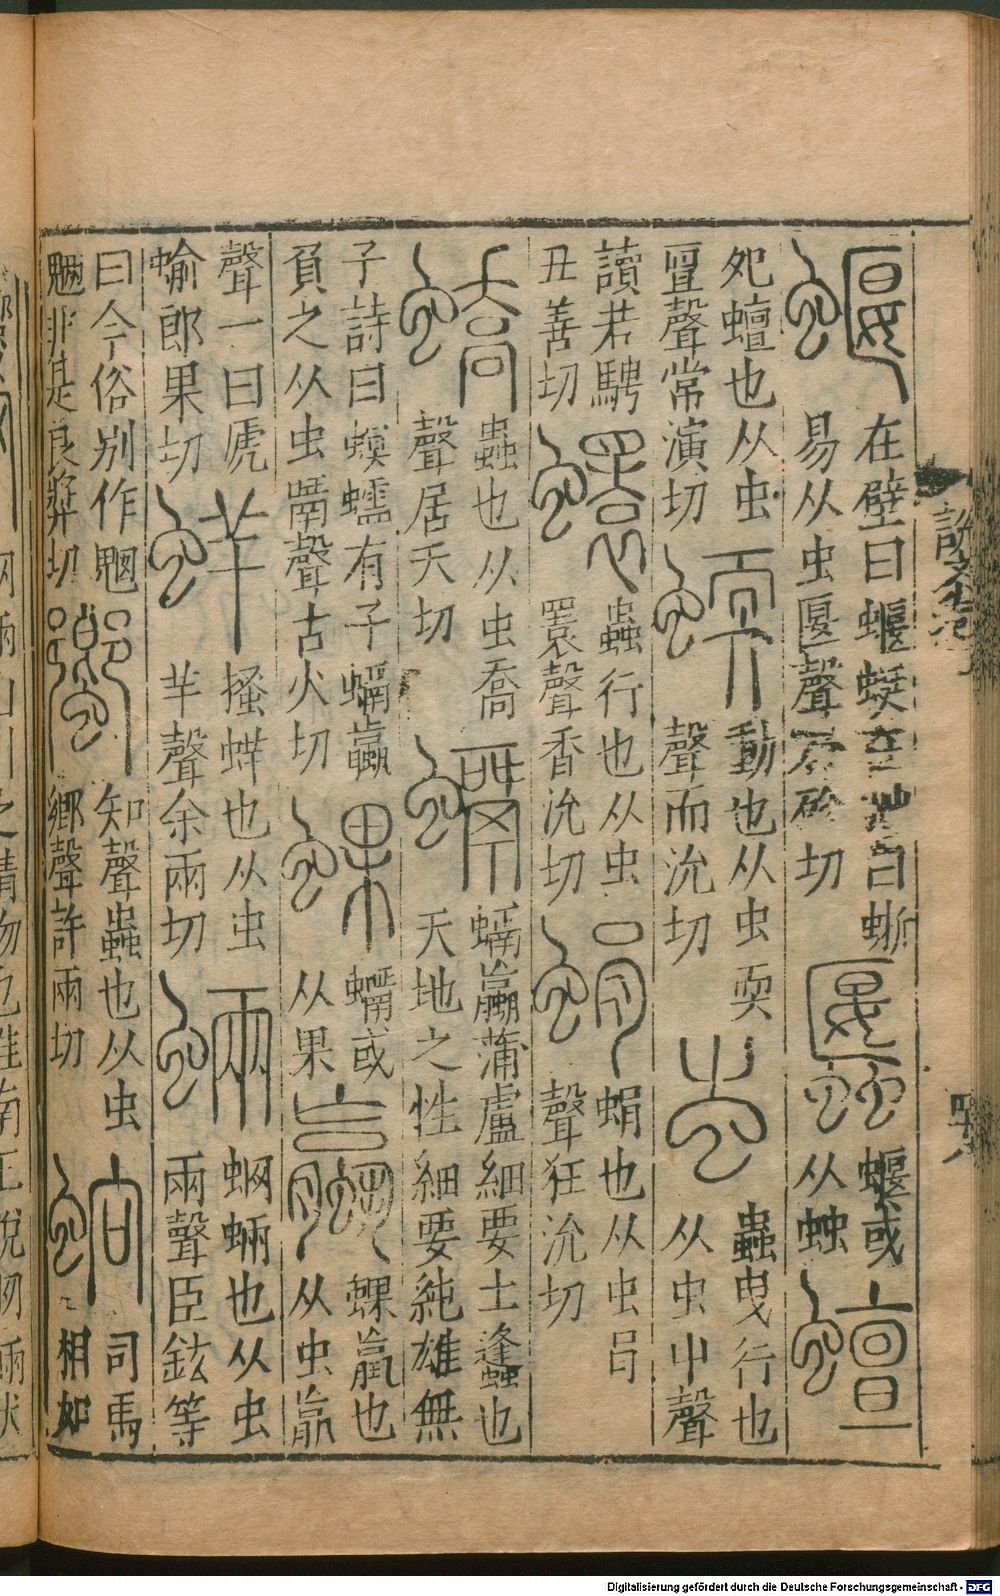 蝘
在壁曰蝘蜓在艸曰蜥
易从虫匽聲於殄切
𧔅
蝘或
从䖵
蟺
夗蟺也从虫
亶聲常演切
蝡
動也从虫耎
聲而沇切
蚩
蟲曳行也
从虫屮聲
讀若騁
丑善切
蠉
蟲行也从虫
睘聲香沇切
蜎
蜎也从虫肙
聲狂沇切
蟜
蟲也从虫喬
聲居夭切
蠣蠃蒲盧細要土蠭也
天地之性細要純雄無
子詩曰螟蠕有子蠣蠃
負之从虫𠾇聲古火切
蜾
蠣或
从果
蠃
蜾蠃也
从虫𦝠
聲一曰虒
蝓郎果切
蛘
搔蛘也从虫
羊聲余兩切
蜽
蛧蜽也从虫
兩聲臣鉉等
曰今俗別作魍
魎非是良奨切
蠁
知聲蟲也从虫
鄉聲許兩切
蚼
司馬
相如
蛧蜽山川之精物也淮南王說蛧蜽狀
Digitalisierung gefördert durch die Deutsche Forschungsgemeinschaft - DFG